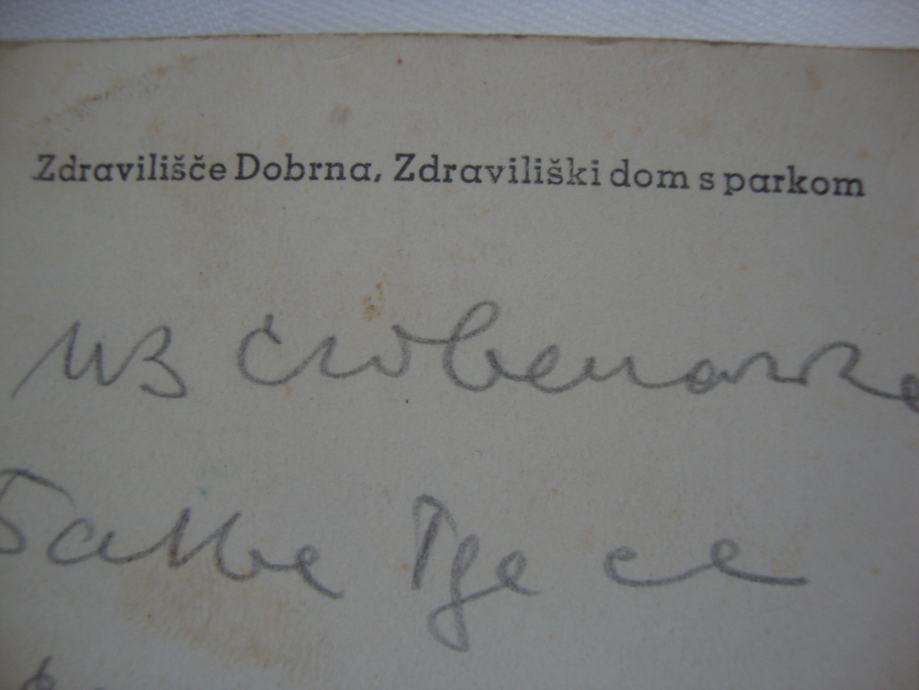 Zdravilišče Dobrna, Zdraviliški dom s parkom
из Словеначке
Бање где се